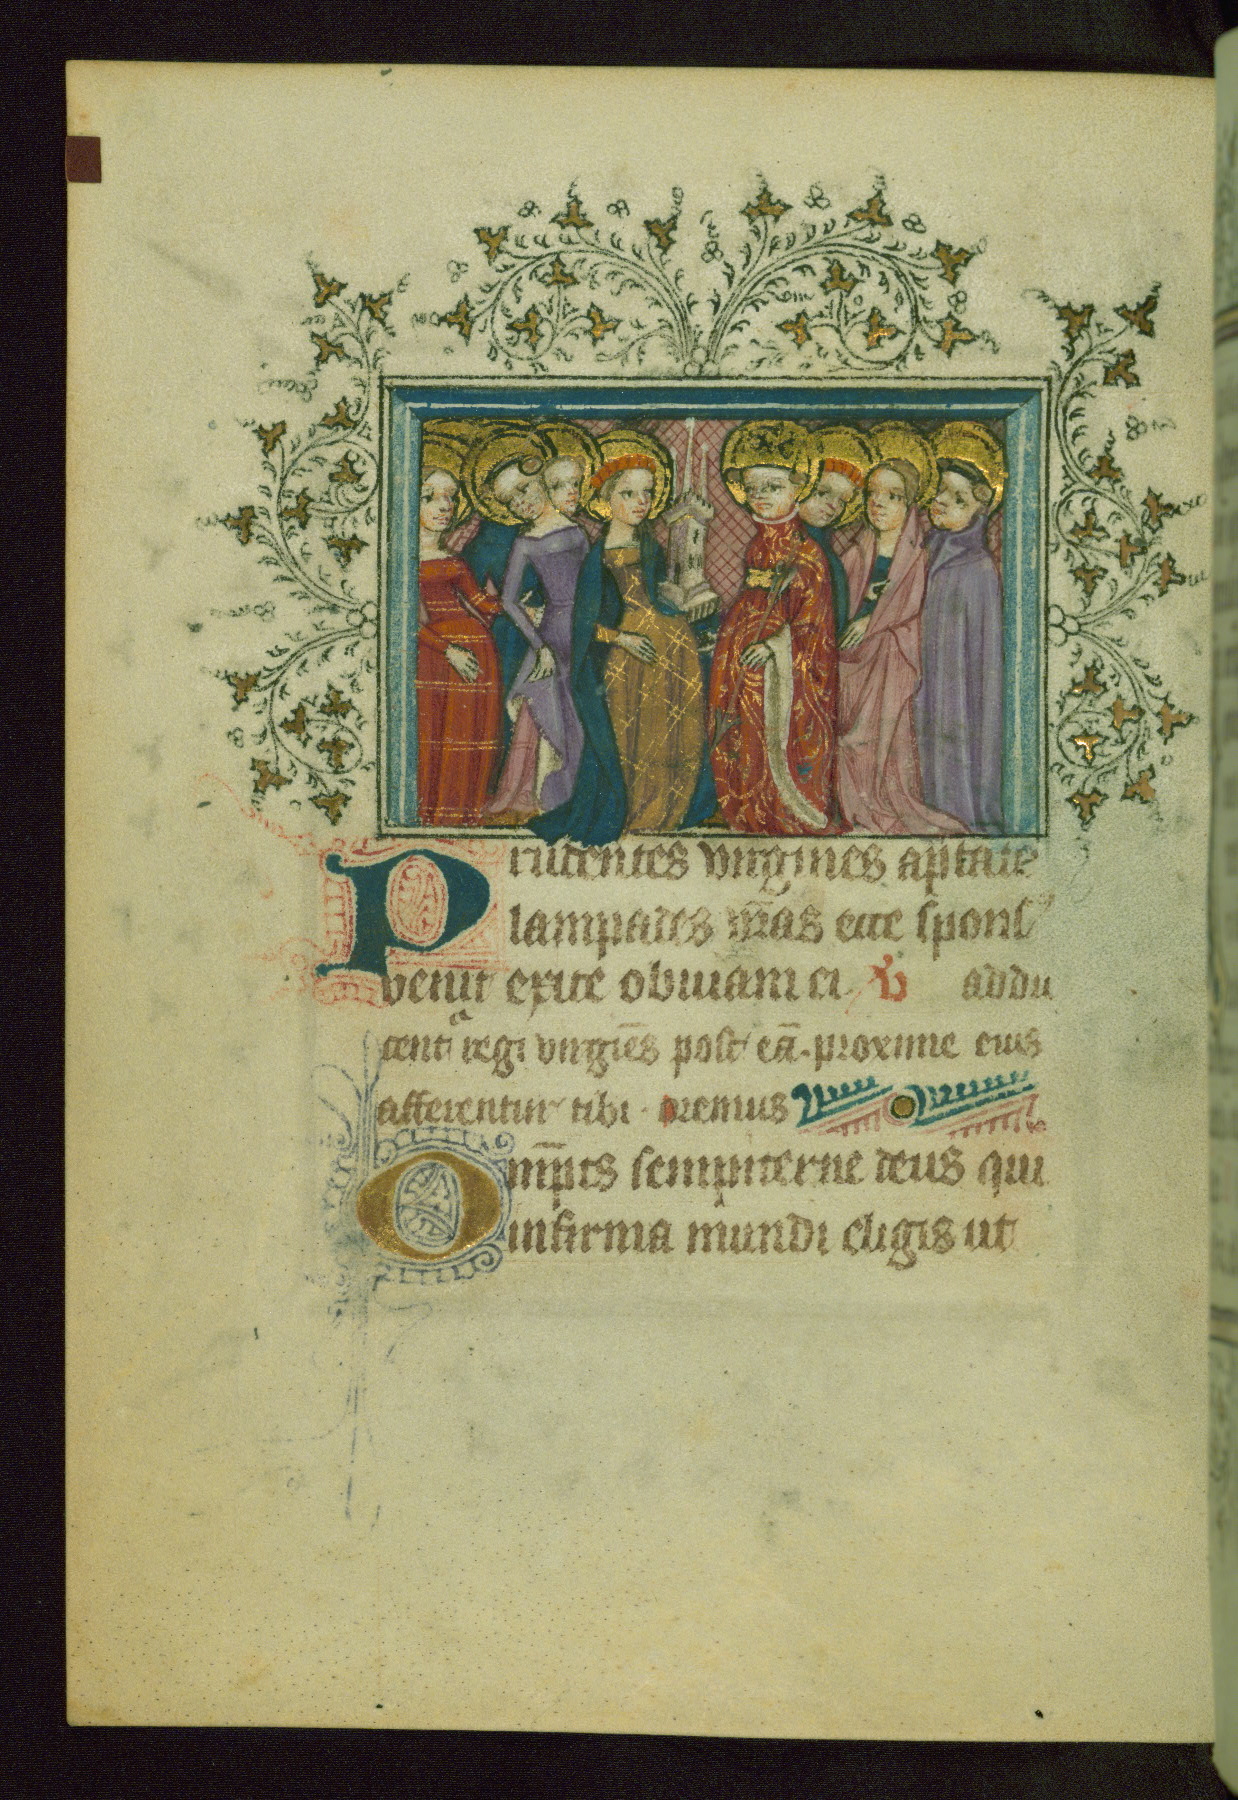 Prudentes virgines aptate
lampades vr̄as ecce spons9
venit exite obuiam ei V addu
centᷓ regi virgīes post eā. proxime eius
afferentur tibi. oremus
Omp̄ts sempiterne deus qui
infirma mundi eligis ut